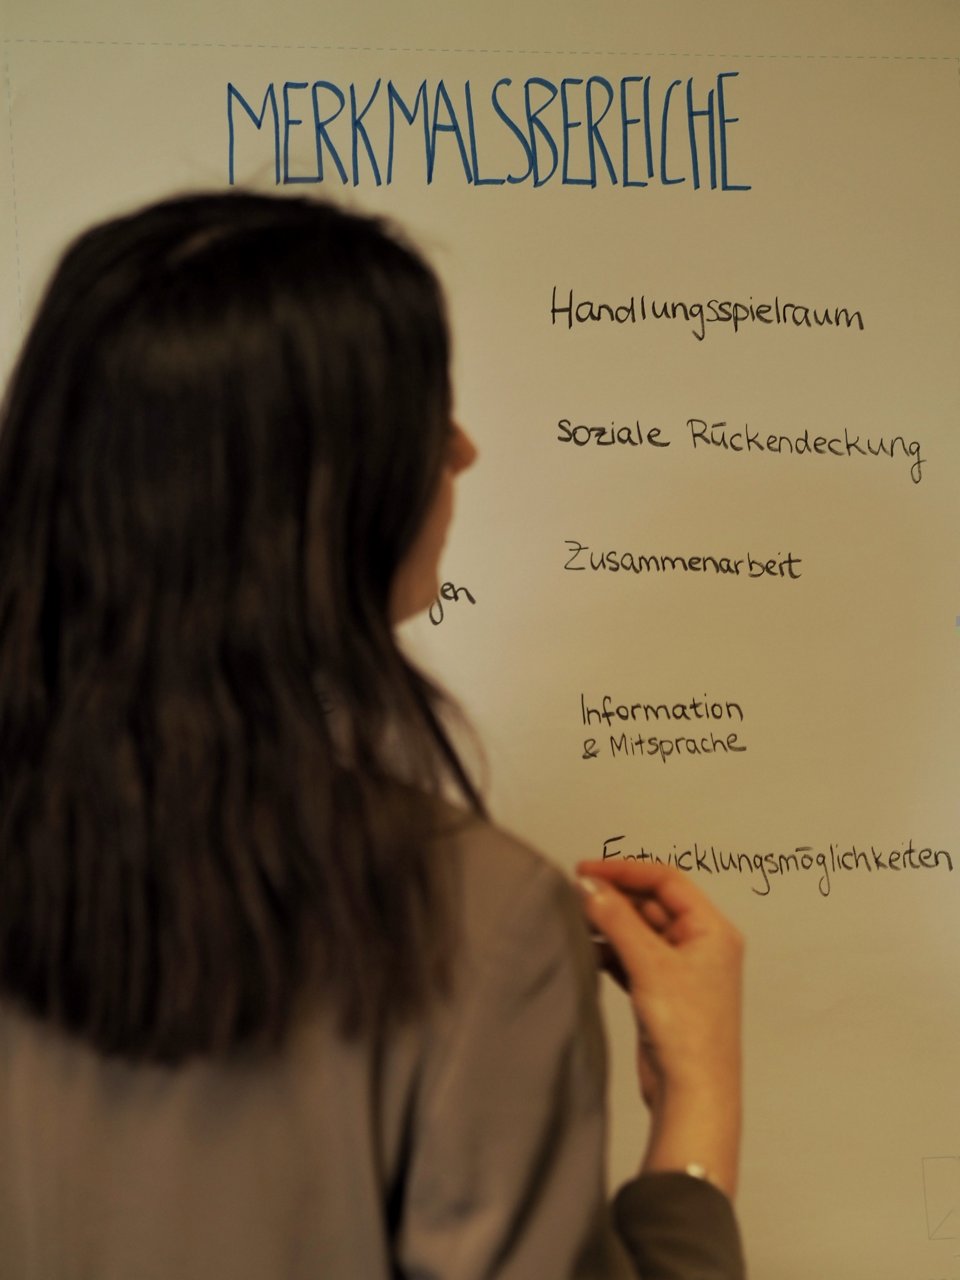 MERKMALSBEREICHE
Handlungsspielraum
Soziale Rückendeckung
Zusammenarbeit
Information
& Mitsprache
Entwicklungsmöglichkeiten